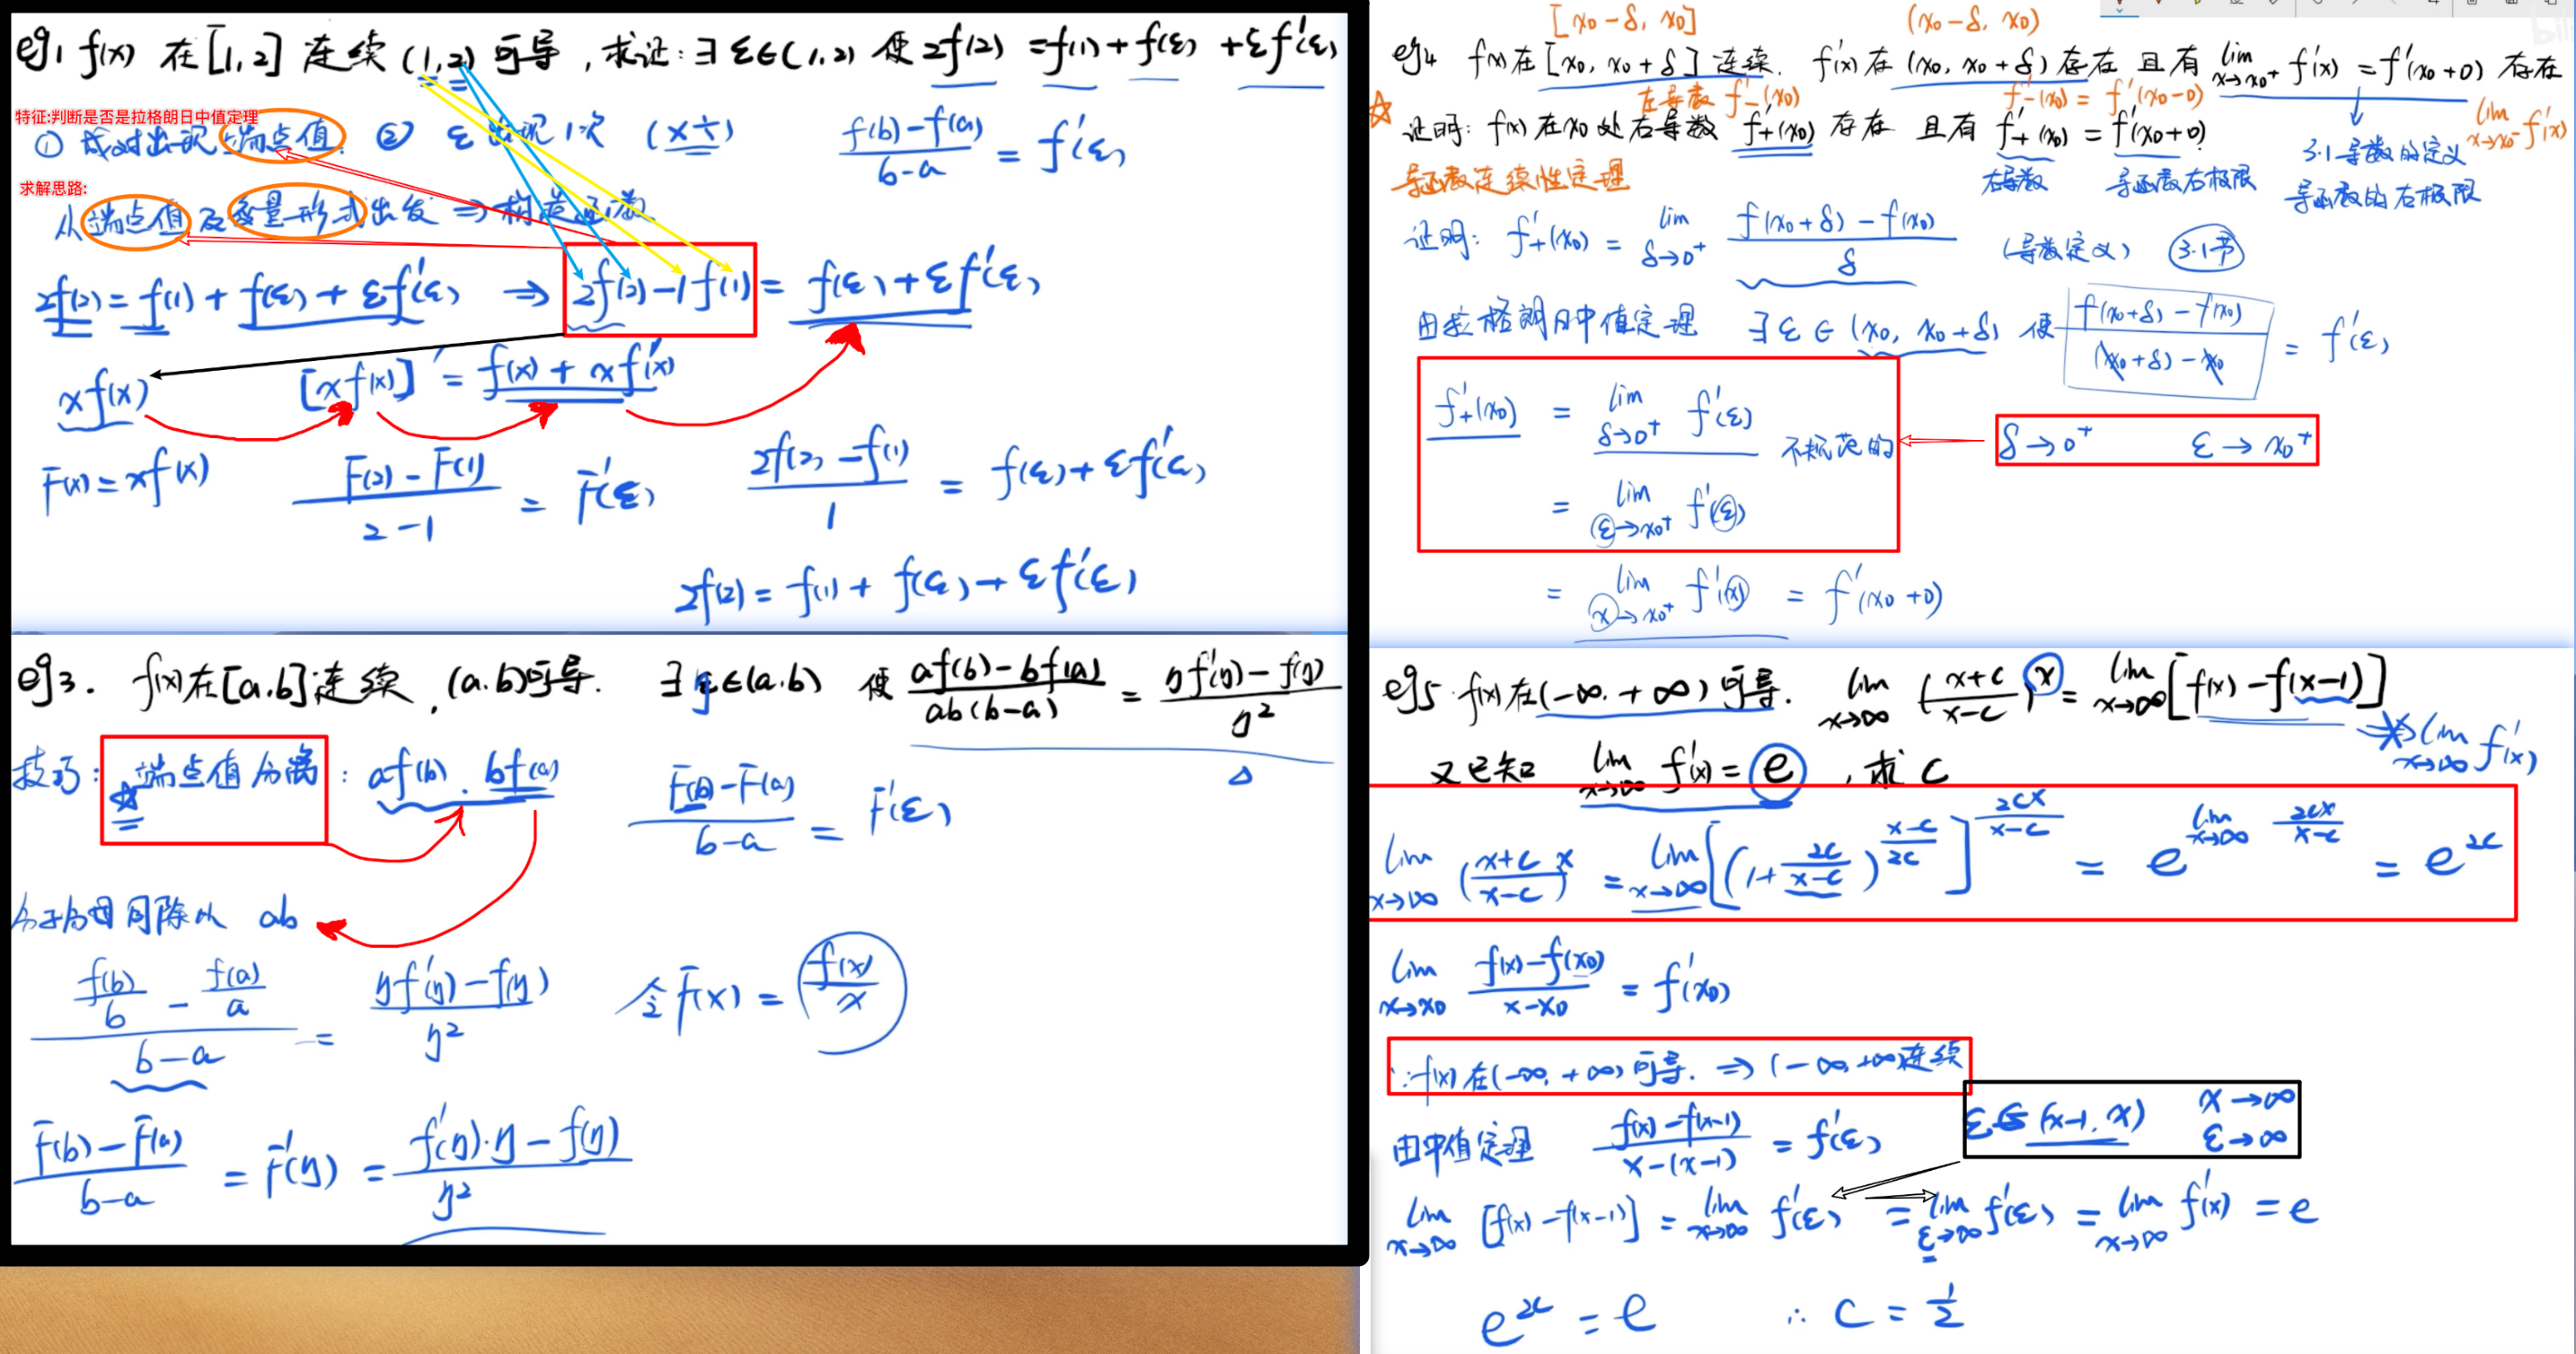 eg1 f(x) 在 [1,2] 连续 (1,2) 可导 , 求证 : ∃ ε∈(1,2) 使 2f(2) = f(1) + f(ε) + εf'(ε)
特征:判断是否是拉格朗日中值定理
① 成对出现 端点值. ② ε 出现 1次 (x 六) (f(b)-f(a))/(b-a) = f'(ε)
求解思路:
从端点值及变量形式出发 ⇒ 构造函数.
2f(2) = f(1) + f(ε) + εf'(ε) ⇒ 2f(2)-1f(1) = f(ε) + εf'(ε)
xf(x) [xf(x)]' = f(x) + xf'(x)
F(x) = xf(x) (F(2)-F(1))/(2-1) = F'(ε) (2f(2)-f(1))/1 = f(ε) + εf'(ε)
2f(2) = f(1) + f(ε) + εf'(ε)
eg3. f(x)在[a.b]连续 , (a.b)可导. ∃ η∈(a.b) 使 (af(b)-bf(a))/(ab(b-a)) = (ηf'(η)-f(η))/η²
技巧 : 端点值分离 : af(b) . bf(a) (F(b)-F(a))/(b-a) = F'(ε)
分子分母同除以 ab
(f(b)/b - f(a)/a)/(b-a) = (ηf'(η)-f(η))/η² 令 F(x) = f(x)/x
(F(b)-F(a))/(b-a) = F'(η) = (f'(η)·η-f(η))/η²
[x0-δ, x0] (x0-δ, x0)
eg4 f(x)在[x0, x0+δ]连续. f'(x)在(x0, x0+δ)存在 且有 lim x→x0+ f'(x) = f'(x0+0) 存在
左导数 f'-(x0) f'-(x0) = f'(x0-0) lim x→x0- f'(x)
证明: f(x)在x0处右导数 f'+(x0) 存在 且有 f'+(x0) = f'(x0+0)
导函数连续性定理 右导数 导函数右极限 3.1导数的定义
导函数的右极限
证明: f'+(x0) = lim δ→0+ (f(x0+δ)-f(x0))/δ (导数定义) 3.1节
由拉格朗日中值定理 ∃ ε∈(x0, x0+δ) 使 (f(x0+δ)-f(x0))/((x0+δ)-x0) = f'(ε)
f'+(x0) = lim δ→0+ f'(ε) 不规范的 δ→0+ ε→x0+
= lim ε→x0+ f'(ε)
= lim x→x0+ f'(x) = f'(x0+0)
eg5 f(x)在(-∞,+∞)可导. lim x→∞ ((x+c)/(x-c))^x = lim x→∞ [f(x)-f(x-1)]
lim x→∞ f'(x)
又已知 lim x→∞ f'(x) = e , 求 c
lim x→∞ ((x+c)/(x-c))^x = lim x→∞ [(1+2c/(x-c))^((x-c)/2c)]^(2cx/(x-c)) = e^(lim x→∞ 2cx/(x-c)) = e^2c
lim x→x0 (f(x)-f(x0))/(x-x0) = f'(x0)
∵ f(x)在(-∞,+∞)可导. ⇒ (-∞,+∞)连续
由中值定理 (f(x)-f(x-1))/(x-(x-1)) = f'(ε) ε∈(x-1,x) x→∞ ε→∞
lim x→∞ [f(x)-f(x-1)] = lim x→∞ f'(ε) = lim ε→∞ f'(ε) = lim x→∞ f'(x) = e
e^2c = e ∴ c = 1/2